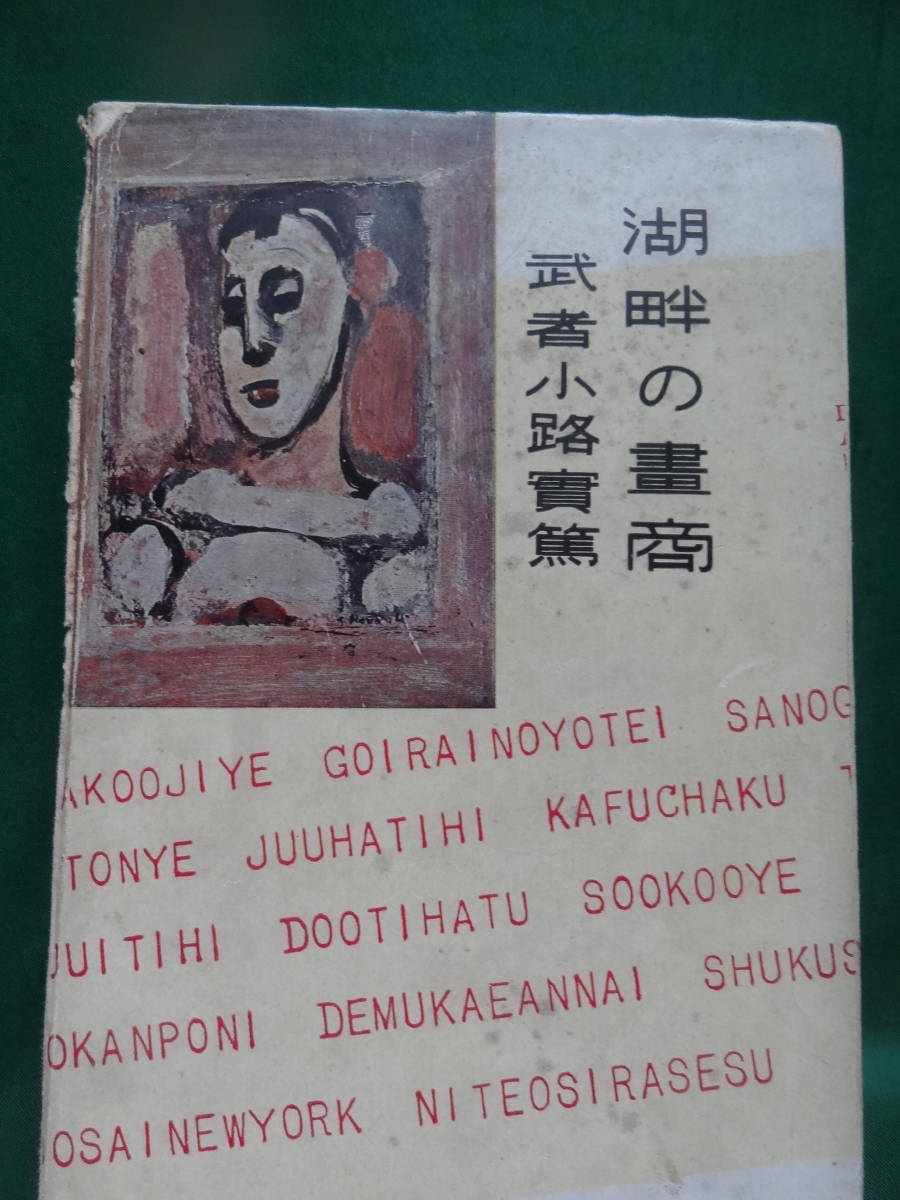 湖畔の畫商
武者小路實篤
AKOOJIYE GOIRAINOYOTEI SANOG
TONYE JUUHATIHI KAFUCHAKU
UITIHI DOOTIHATU SOOKOOYE
OKANPONI DEMUKAEANNAI SHUKUS
OSAINEWYORK NITEOSIRASESU